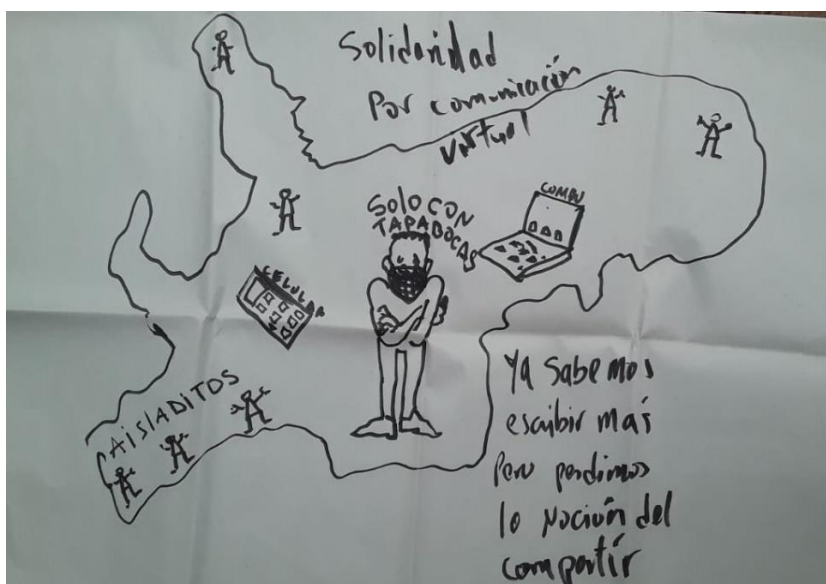 Solidaridad
Por comunicación
virtual
SOLO CON
TAPABOCAS
COMPU
CELULAR
CAISLADITOS
Ya sabemos
escribir más
Pero perdimos
la noción del
compartir